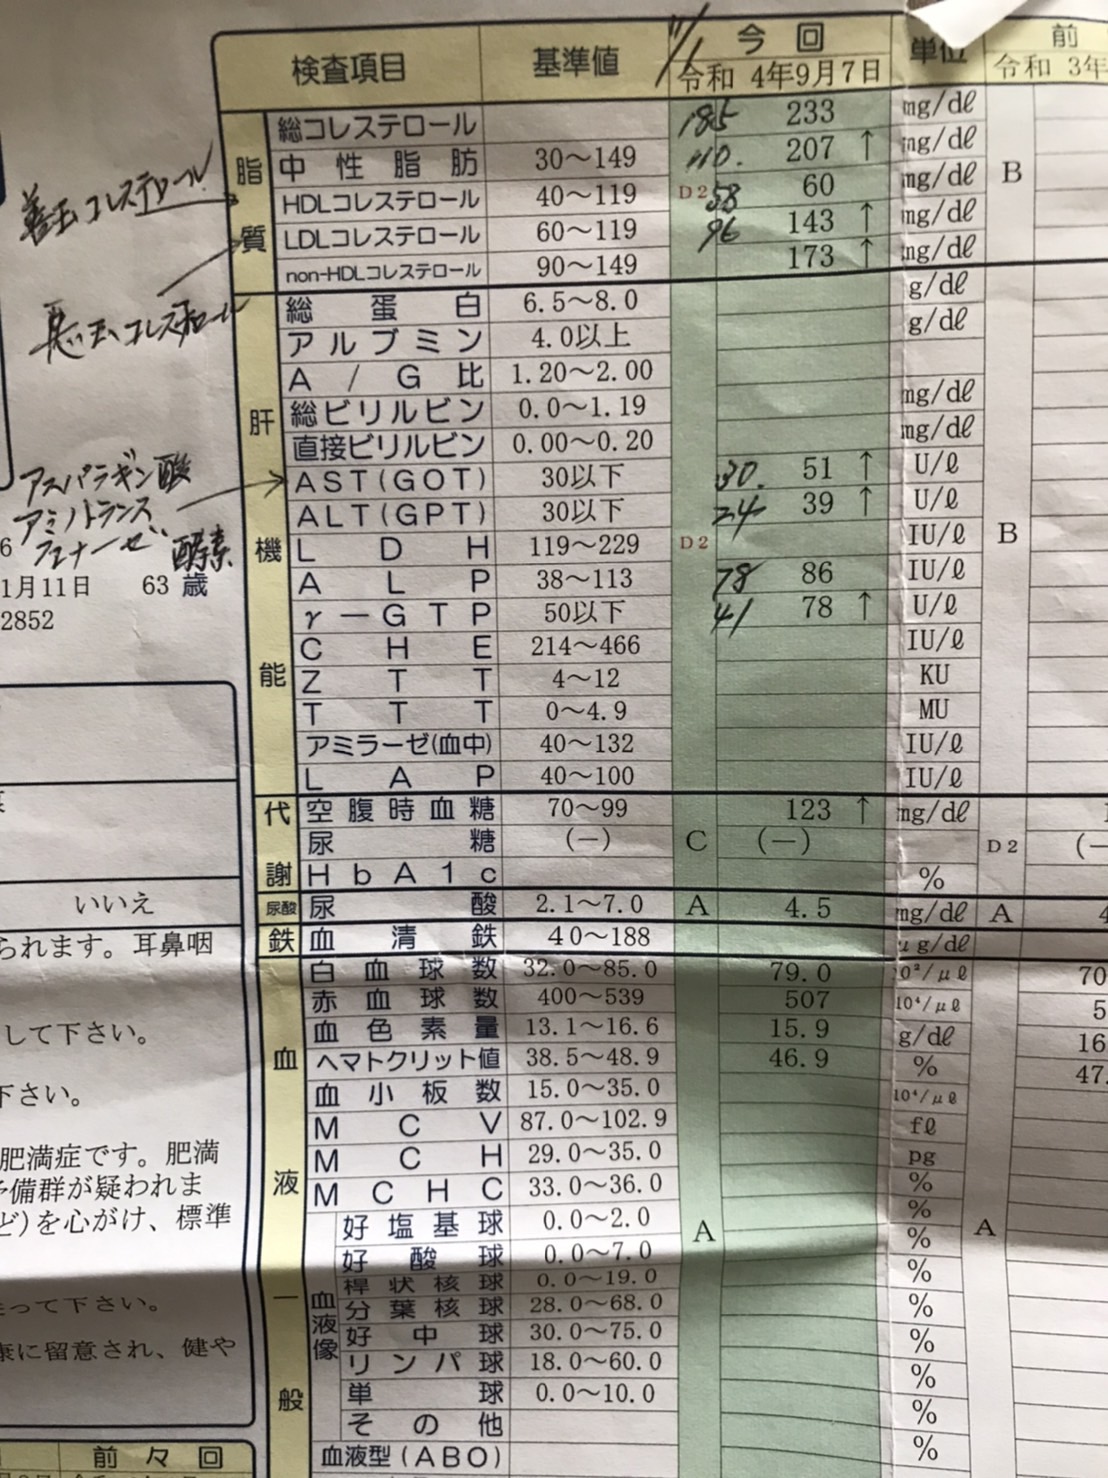 検査項目 基準値 11/1 今回 単位 前
令和 4年9月7日 令和 3年
脂質
総コレステロール 185 233 mg/dℓ
中性脂肪 30〜149 110. 207 ↑ mg/dℓ B
HDLコレステロール 40〜119 D2 58 60 mg/dℓ
LDLコレステロール 60〜119 96 143 ↑ mg/dℓ
non-HDLコレステロール 90〜149 173 ↑ mg/dℓ
善玉コレステロール
悪玉コレステロール
肝機能
総蛋白 6.5〜8.0 g/dℓ
アルブミン 4.0以上 g/dℓ
A/G比 1.20〜2.00
総ビリルビン 0.0〜1.19 mg/dℓ
直接ビリルビン 0.00〜0.20 mg/dℓ
AST(GOT) 30以下 30. 51 ↑ U/ℓ
ALT(GPT) 30以下 24 39 ↑ U/ℓ
LDH 119〜229 D2 IU/ℓ B
ALP 38〜113 78 86 IU/ℓ
γ-GTP 50以下 41 78 ↑ U/ℓ
CHE 214〜466 IU/ℓ
ZTT 4〜12 KU
TTT 0〜4.9 MU
アミラーゼ(血中) 40〜132 IU/ℓ
LAP 40〜100 IU/ℓ
アスパラギン酸
アミノトランス
フェナーゼ 酵素
6
1月11日 63歳
2852
代謝
空腹時血糖 70〜99 123 ↑ mg/dℓ
尿糖 (−) C (−) D2 (−
HbA1c %
尿酸 尿酸 2.1〜7.0 A 4.5 mg/dℓ A 4
鉄 血清鉄 40〜188 μg/dℓ
血液一般
白血球数 32.0〜85.0 79.0 10²/μℓ 70
赤血球数 400〜539 507 10⁴/μℓ 5
血色素量 13.1〜16.6 15.9 g/dℓ 16
ヘマトクリット値 38.5〜48.9 46.9 % 47.
血小板数 15.0〜35.0 10⁴/μℓ
MCV 87.0〜102.9 fℓ
MCH 29.0〜35.0 pg
MCHC 33.0〜36.0 %
血液像
好塩基球 0.0〜2.0 A % A
好酸球 0.0〜7.0 %
桿状核球 0.0〜19.0 %
分葉核球 28.0〜68.0 %
好中球 30.0〜75.0 %
リンパ球 18.0〜60.0 %
単球 0.0〜10.0 %
その他 %
血液型(ABO)
いいえ
られます。耳鼻咽
して下さい。
下さい。
肥満症です。肥満
予備群が疑われま
ど)を心がけ、標準
って下さい。
康に留意され、健や
前々回